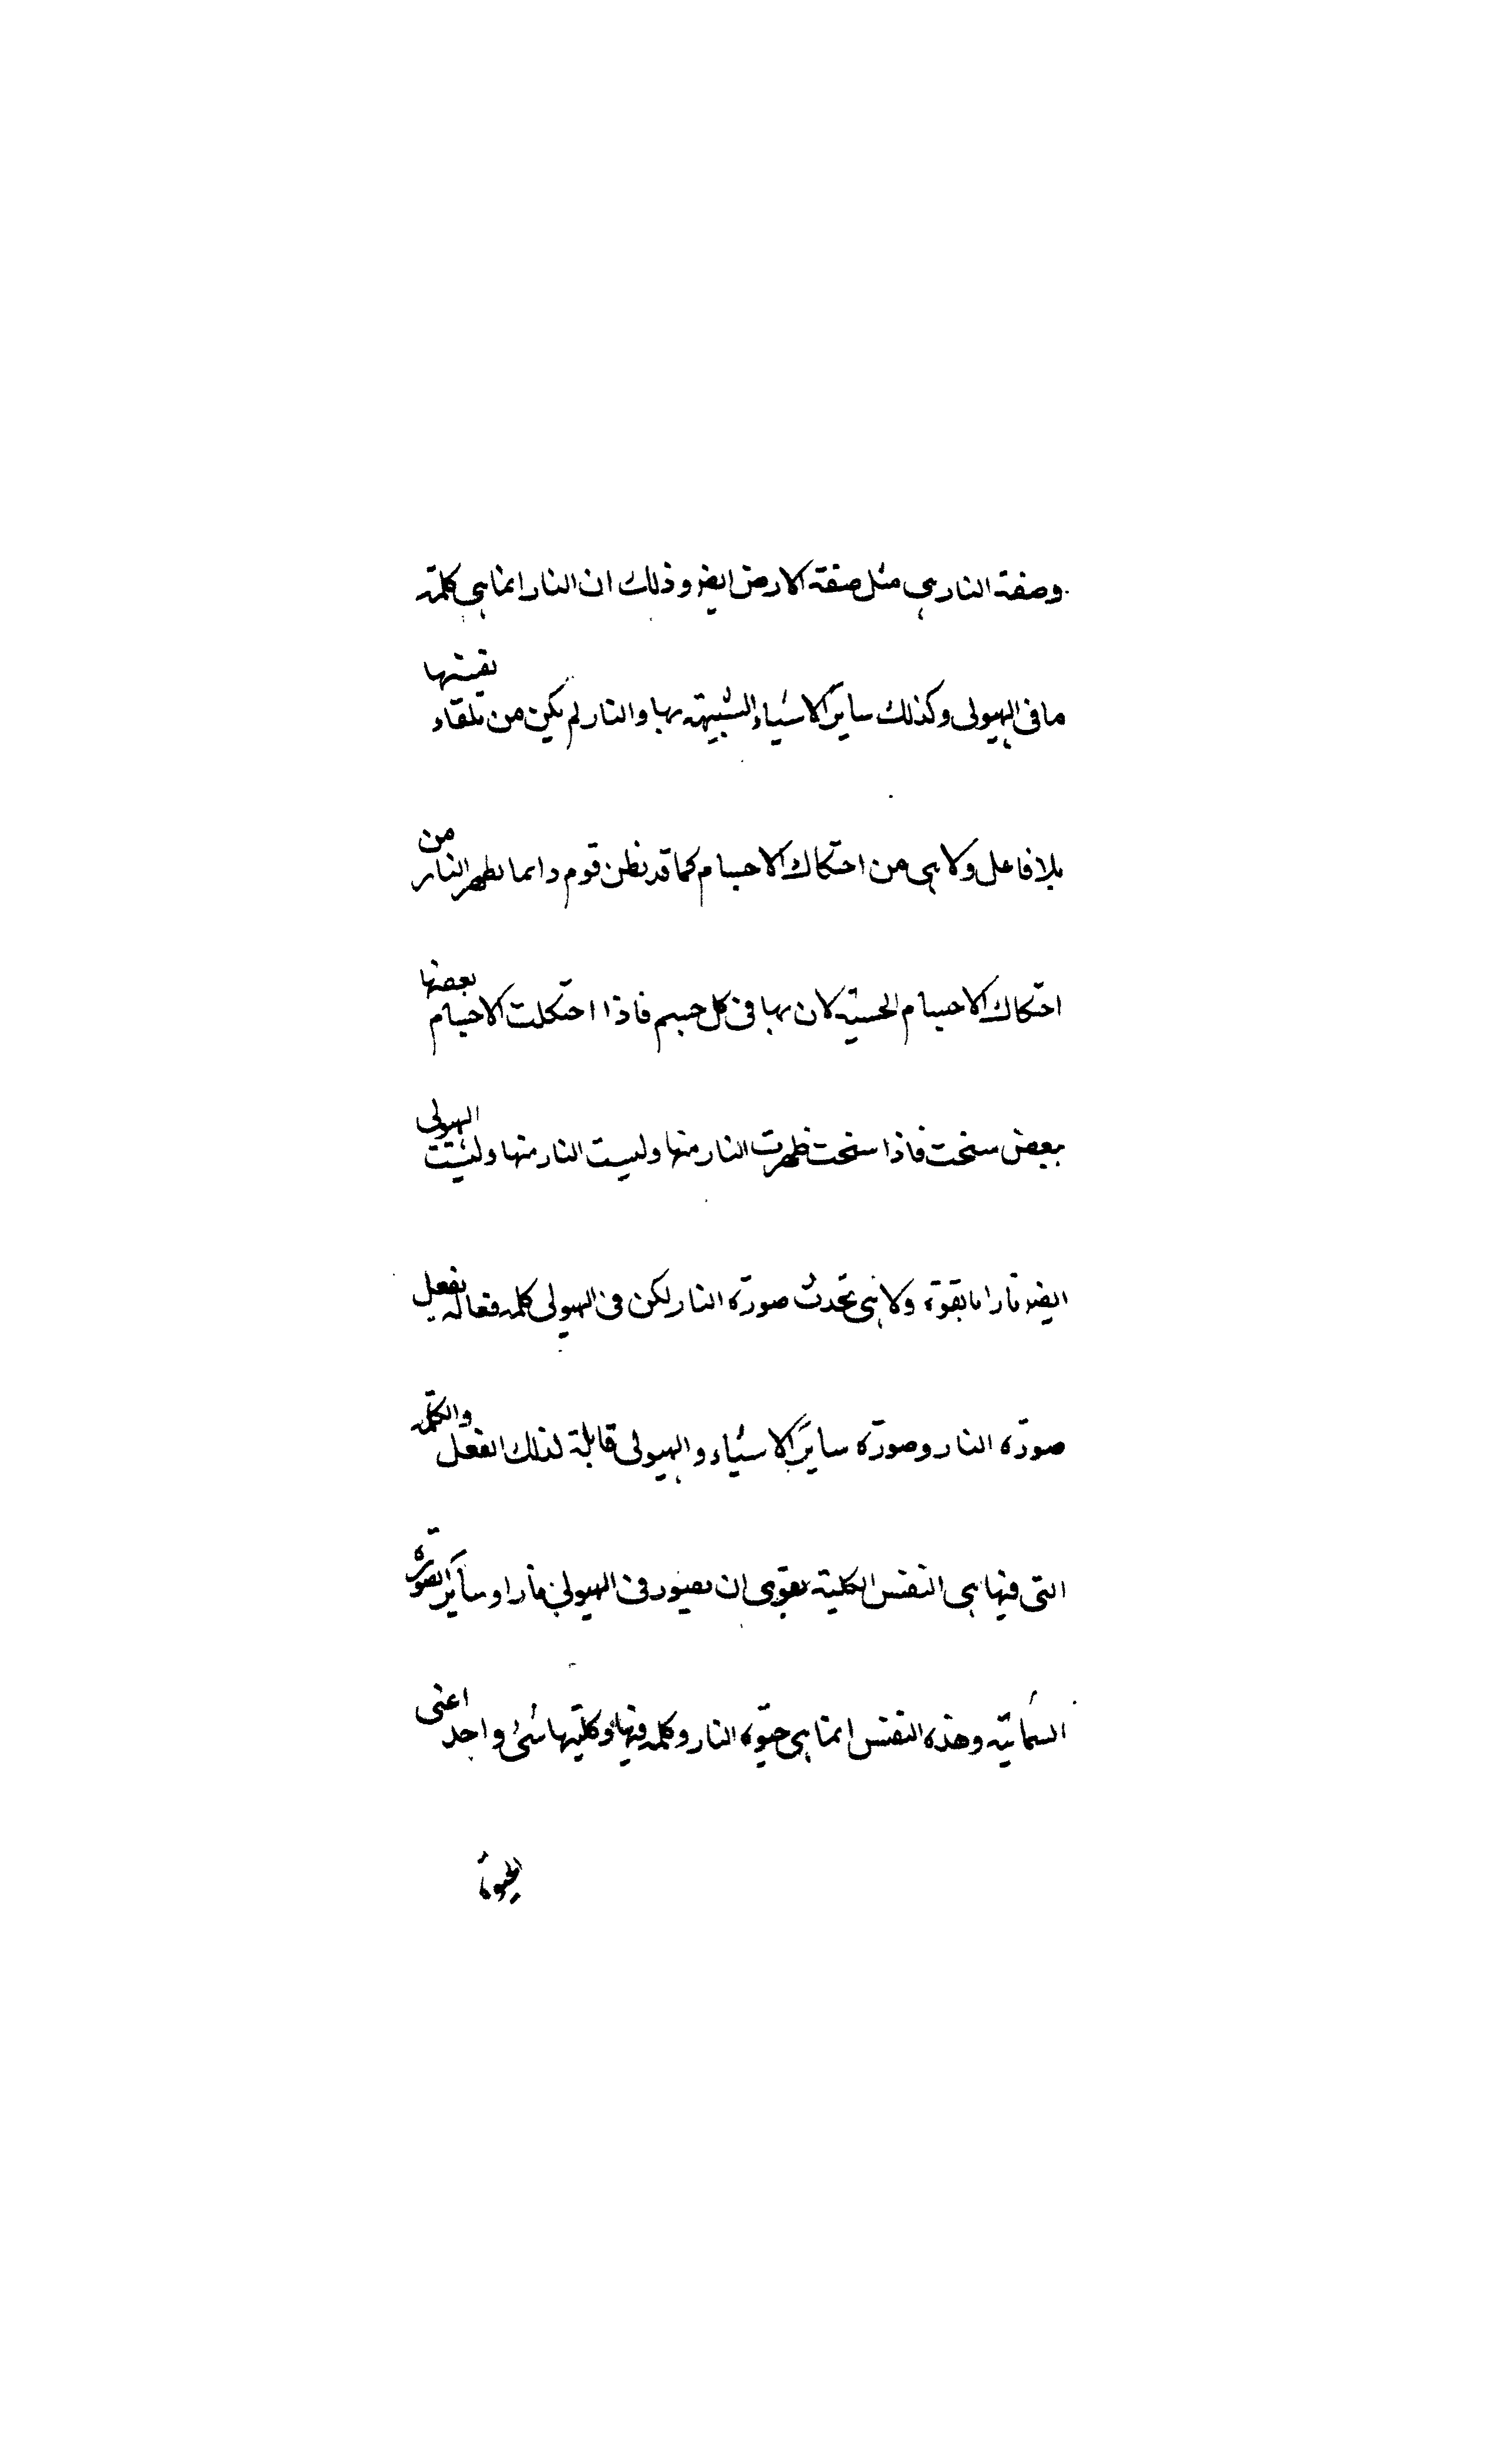 وصفة النار هي مثل صفة الارض ايضر وذلك ان النار انما هي كلمة
ما في الهيولى وكذلك ساير الاشياء الشبيهة بها والنار لم يكن من تلقاء نفسها
بلا فاعل ولا هي من احتكاك الاجسام كما قد نظن قوم دايما نظهر النار من
احتكاك الاجسام الحسية لان بها في كل جسم فاذا احتكلت الاجسام بعضها
ببعض سخنت فاذا سخنت ظهرت النار منها وليست النار منها وليست الهيولى
ايضر نارا ما بقوة ولا هي تحدث صورة النار لكن في الهيولى كلمه فعاله يفعل
صورة النار وصورة ساير الاشياء والهيولى قابلة لذلك الفعل والكلمه
التى فيها هي النفس الكلية يقوى ان يصور في الهيولى نارا وساير الصورة
السمائية وهذه النفس انما هي حيوة النار وكلمه فيها وكلتيهما شئ واحد اعنى
الحيوة